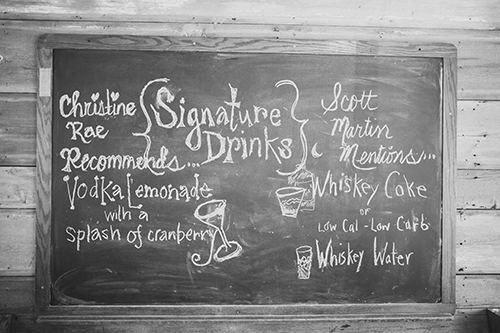 Signature
Drinks
Christine
Rae
Recommends...
Vodka Lemonade
with a
splash of cranberry
Scott
Martin
Mentions...
Whiskey Coke
or
Low Cal - Low Carb
Whiskey Water